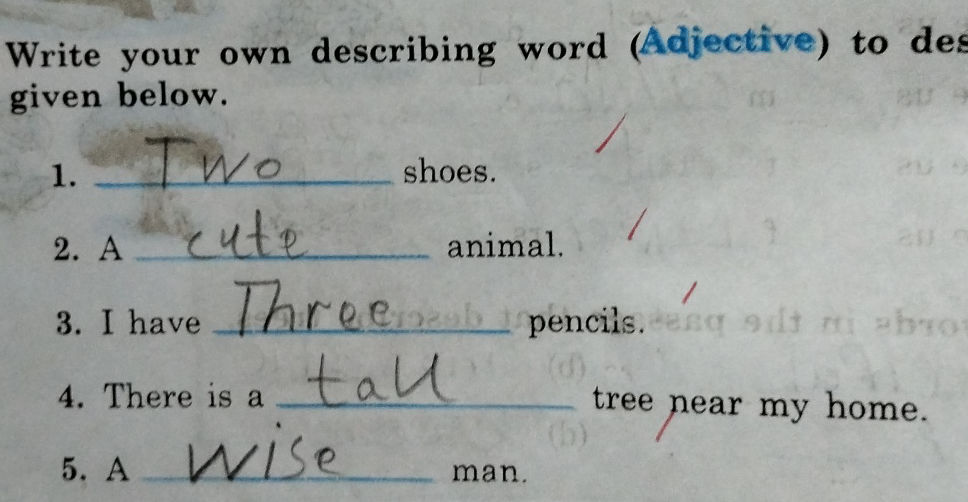 Write your own describing word (Adjective) to des
given below.
1. Two shoes.
2. A cute animal.
3. I have Three pencils.
4. There is a tall tree near my home.
5. A Wise man.